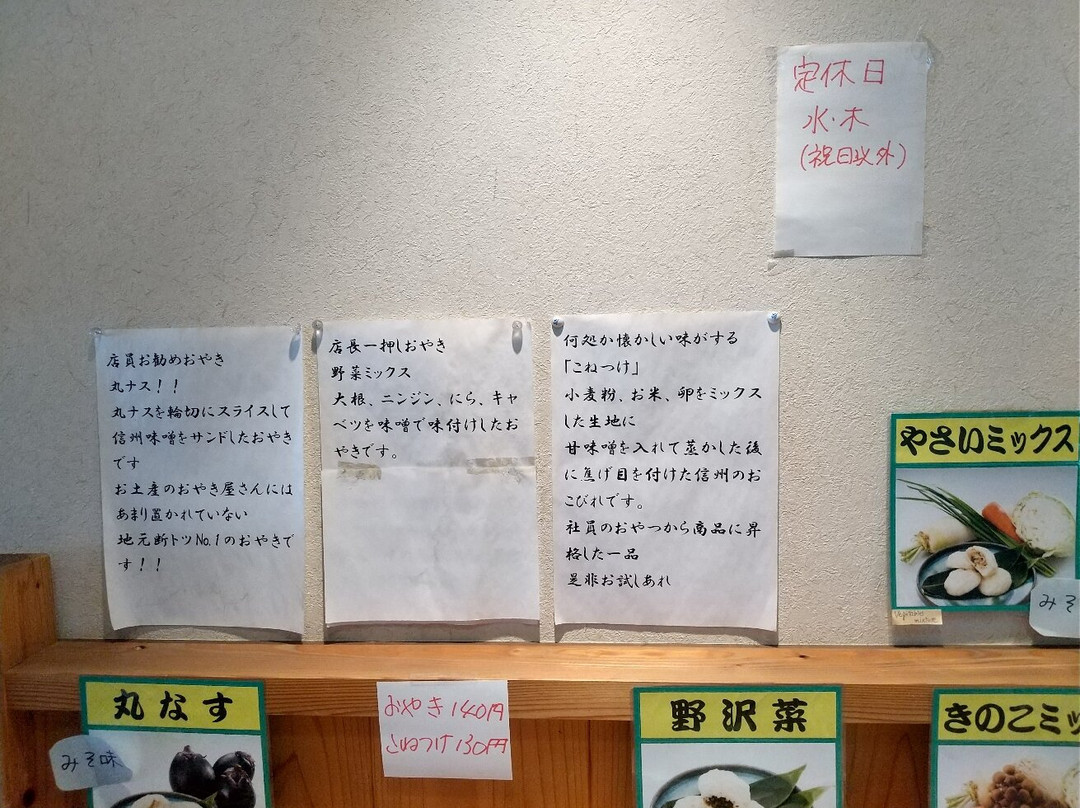 定休日
水・木
(祝日以外)
店員お勧めおやき
丸ナス!!
丸ナスを輪切にスライスして
信州味噌をサンドしたおやき
です
お土産のおやき屋さんには
あまり置かれていない
地元断トツNo.1のおやきで
す!!
店長一押しおやき
野菜ミックス
大根、ニンジン、にら、キャ
ベツを味噌で味付けしたお
やきです。
何処か懐かしい味がする
「こねつけ」
小麦粉、お米、卵をミックス
した生地に
甘味噌を入れて蒸かした後
に焦げ目を付けた信州のお
こびれです。
社員のおやつから商品に昇
格した一品
是非お試しあれ
やさいミックス
みそ
丸なす
みそ味
おやき140円
こねつけ130円
野沢菜
きのこミッ